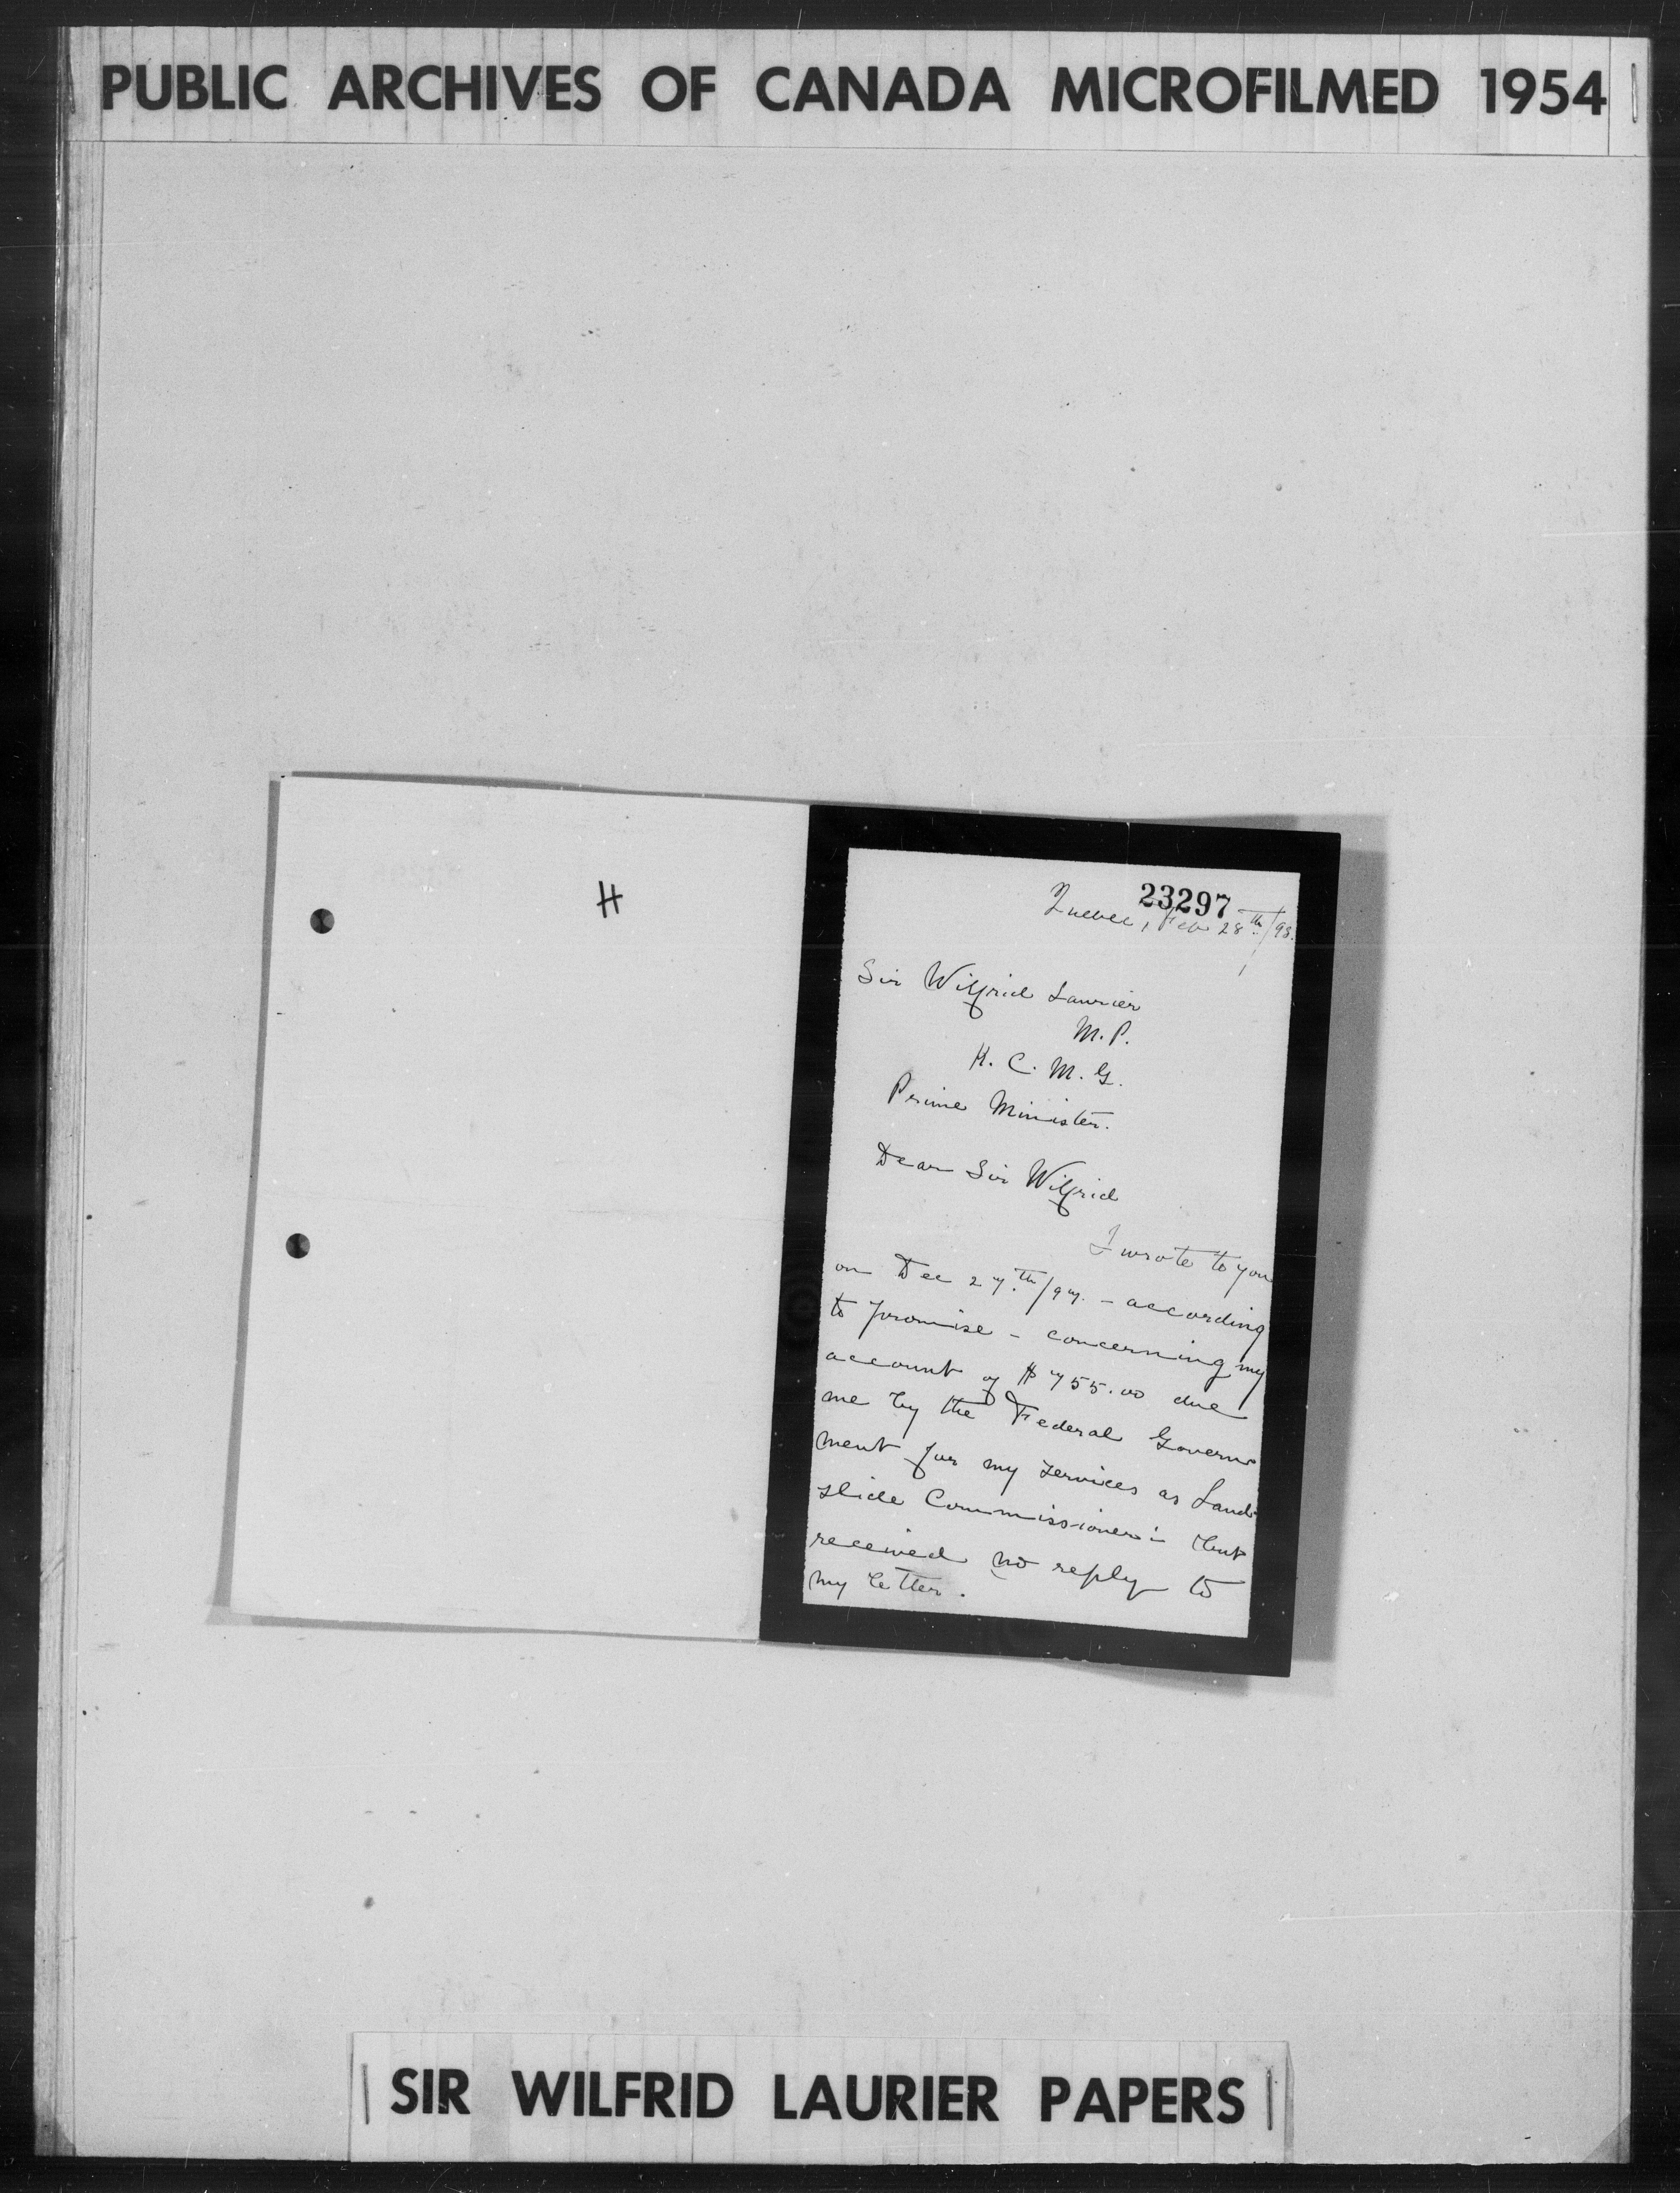 PUBLIC ARCHIVES OF CANADA MICROFILMED 1954
H
23297
Quebec, Feb 28th/98.
Sir Wilfrid Laurier
M.P.
K. C. M. G.
Prime Minister.
Dear Sir Wilfrid
I wrote to you
on Dec 27th/97. - according
to promise - concerning my
account of $755.00 due
me by the Federal Govern
ment for my services as Land-
slide Commissioner :- but
received no reply to
my letter.
SIR WILFRID LAURIER PAPERS